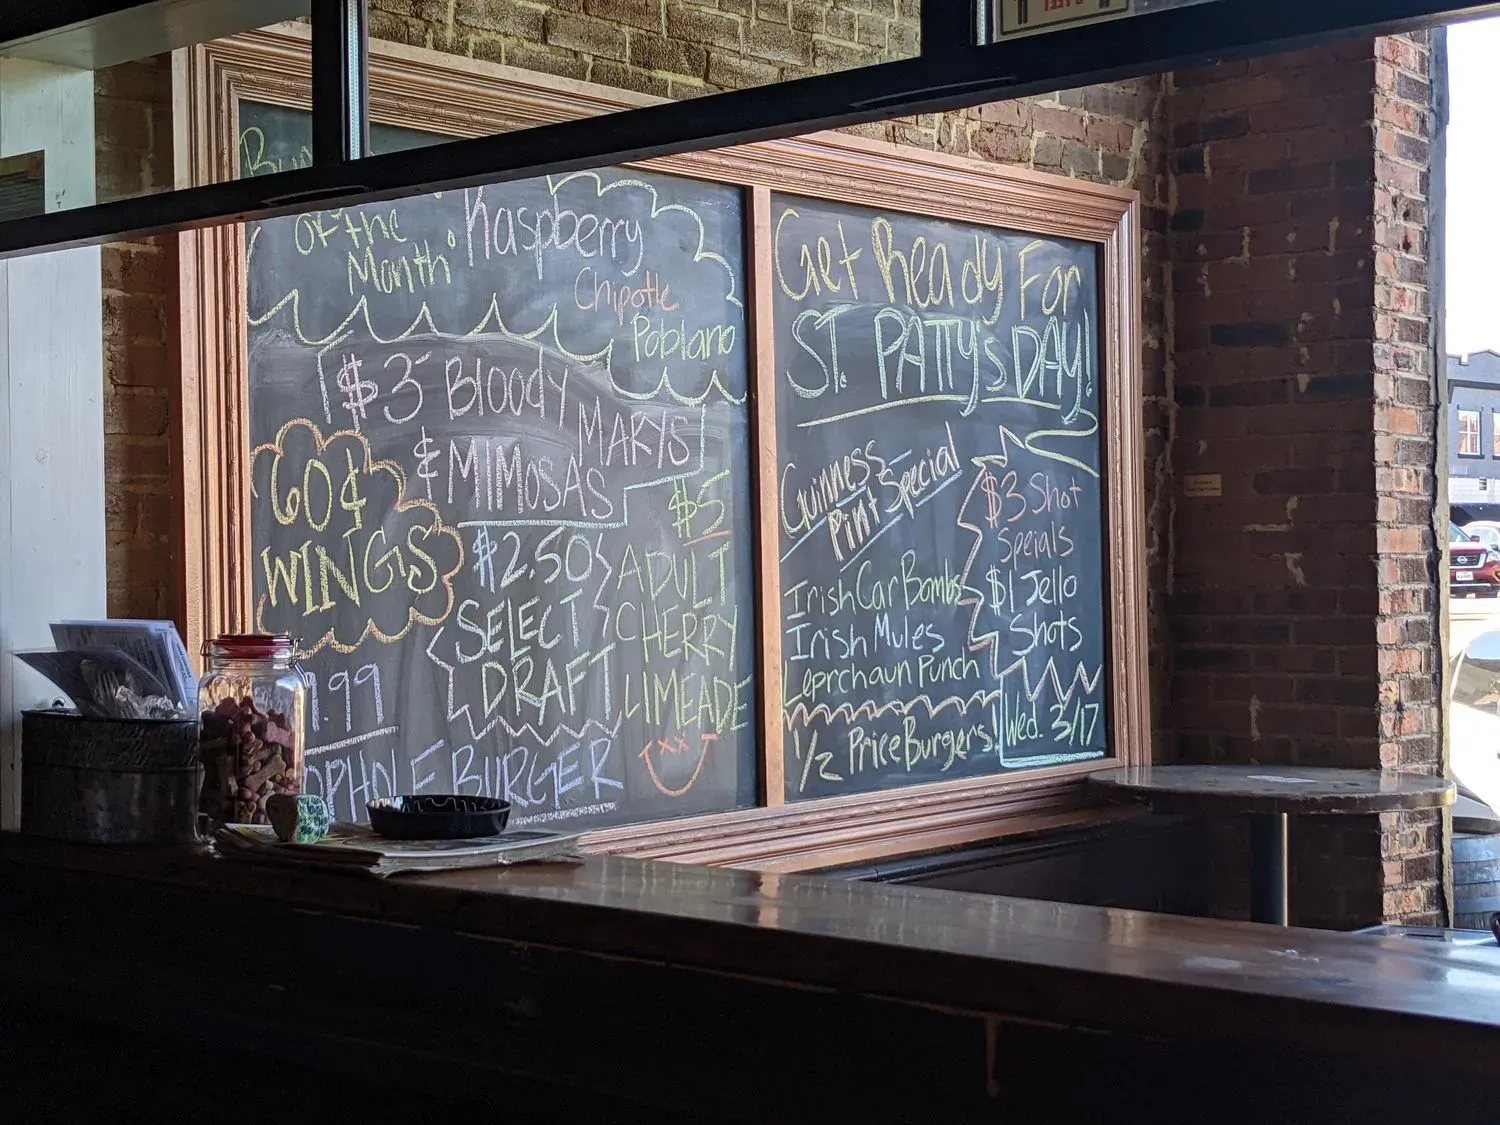 of the
Month:
Raspberry
Chipotle
Poblano
$3 Bloody
MARYS
& MIMOSAS
60¢
WINGS
$2.50
SELECT
DRAFT
$5
ADULT
CHERRY
LIMEADE
.99
BURGER
Get Ready For
ST. PATTY'S DAY!
Guinness
Pint Special
Irish Car Bombs
Irish Mules
Leprchaun Punch
$3 Shot
Speials
$1 Jello
Shots
1/2 Price Burgers!
Wed. 3/17